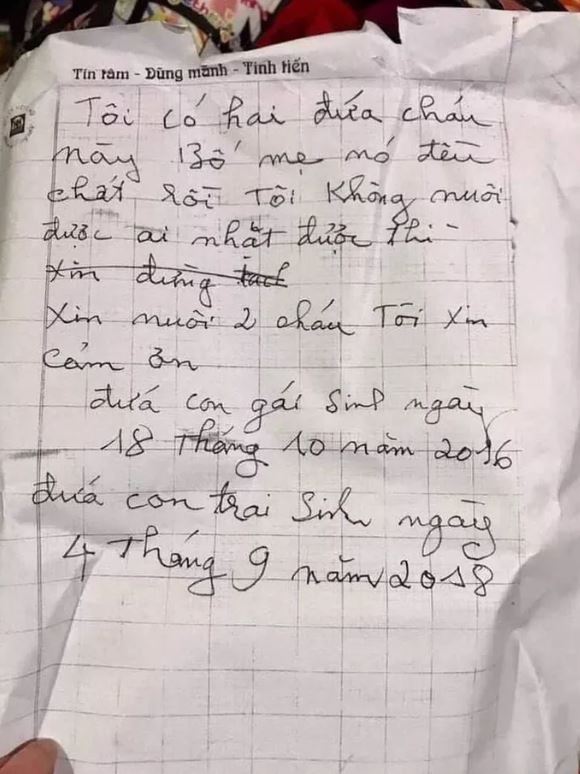 Tín tâm - Dũng mãnh - Tinh tiến
Tôi có hai đứa cháu
này Bố mẹ nó đều
chất rồi Tôi Không nuôi
được ai nhặt được thì
xin đừng tach
Xin nuôi 2 cháu Tôi Xin
cảm ơn
đứa con gái Sinh ngày
18 Tháng 10 năm 2016
đứa con trai Sinh ngày
4 Tháng 9 năm 2018